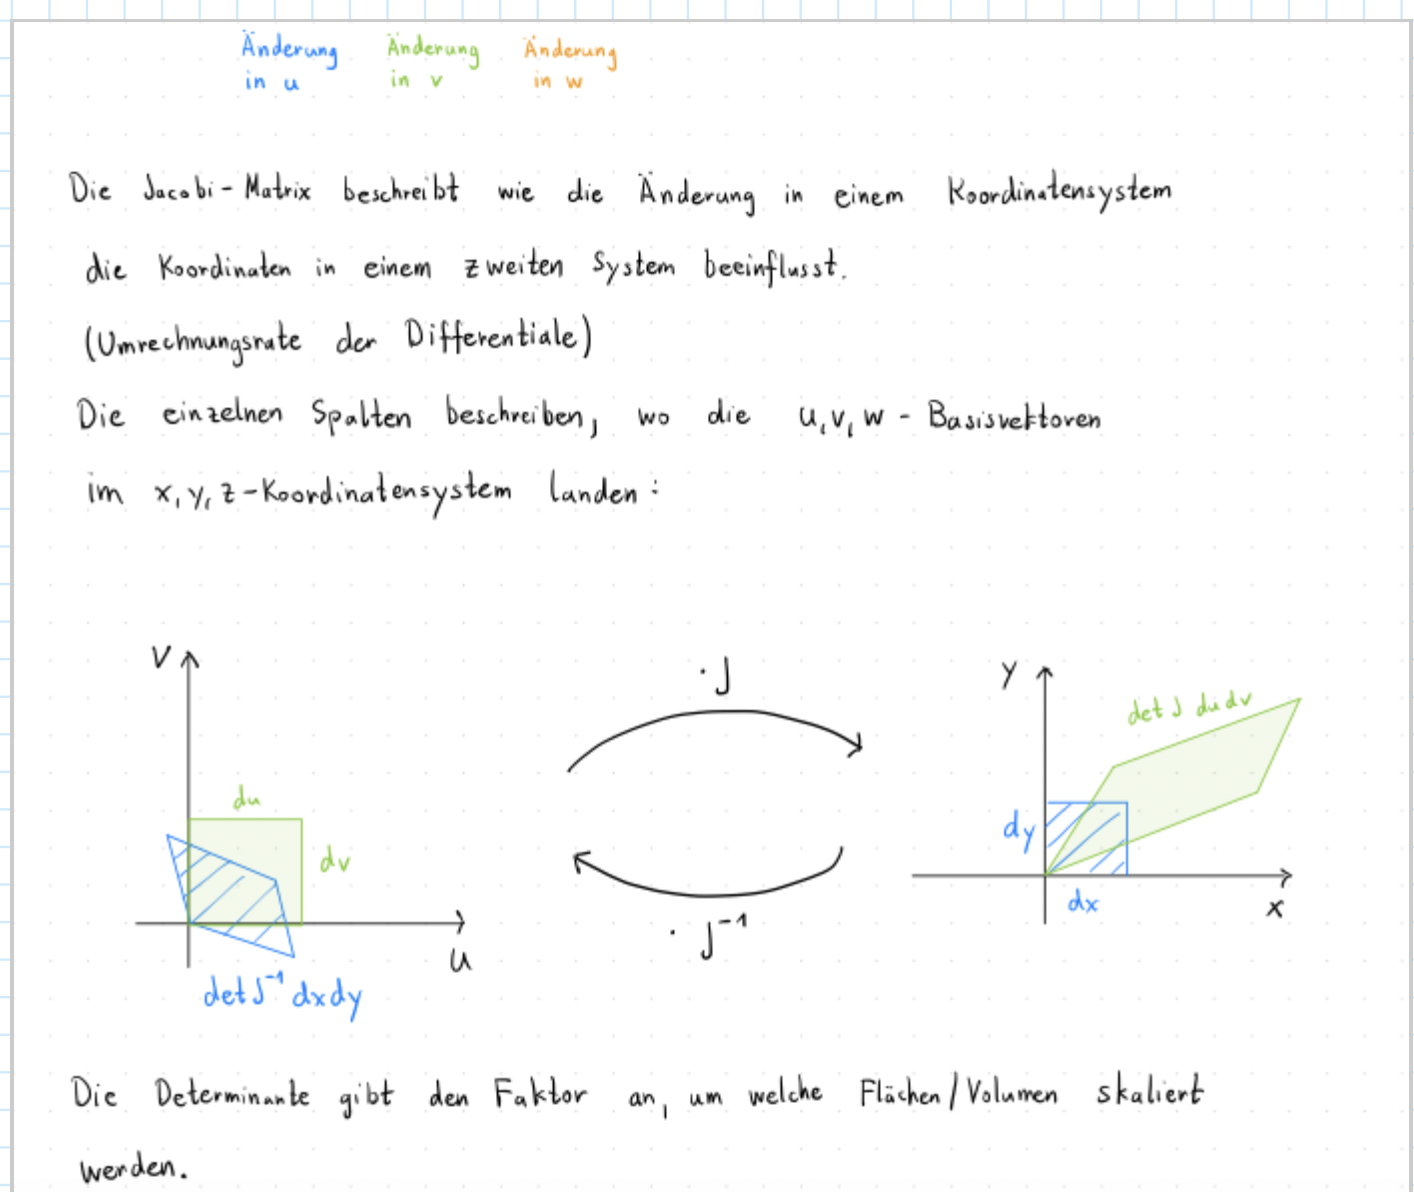 Änderung Änderung Änderung
in u in v in w
Die Jacobi-Matrix beschreibt wie die Änderung in einem Koordinatensystem
die Koordinaten in einem zweiten System beeinflusst.
(Umrechnungsrate der Differentiale)
Die einzelnen Spalten beschreiben, wo die u, v, w - Basisvektoren
im x, y, z-Koordinatensystem landen:
v
· J
y
det J du dv
du
dv
dy
dx
x
u
· J⁻¹
det J⁻¹ dx dy
Die Determinante gibt den Faktor an, um welche Flächen/Volumen skaliert
werden.